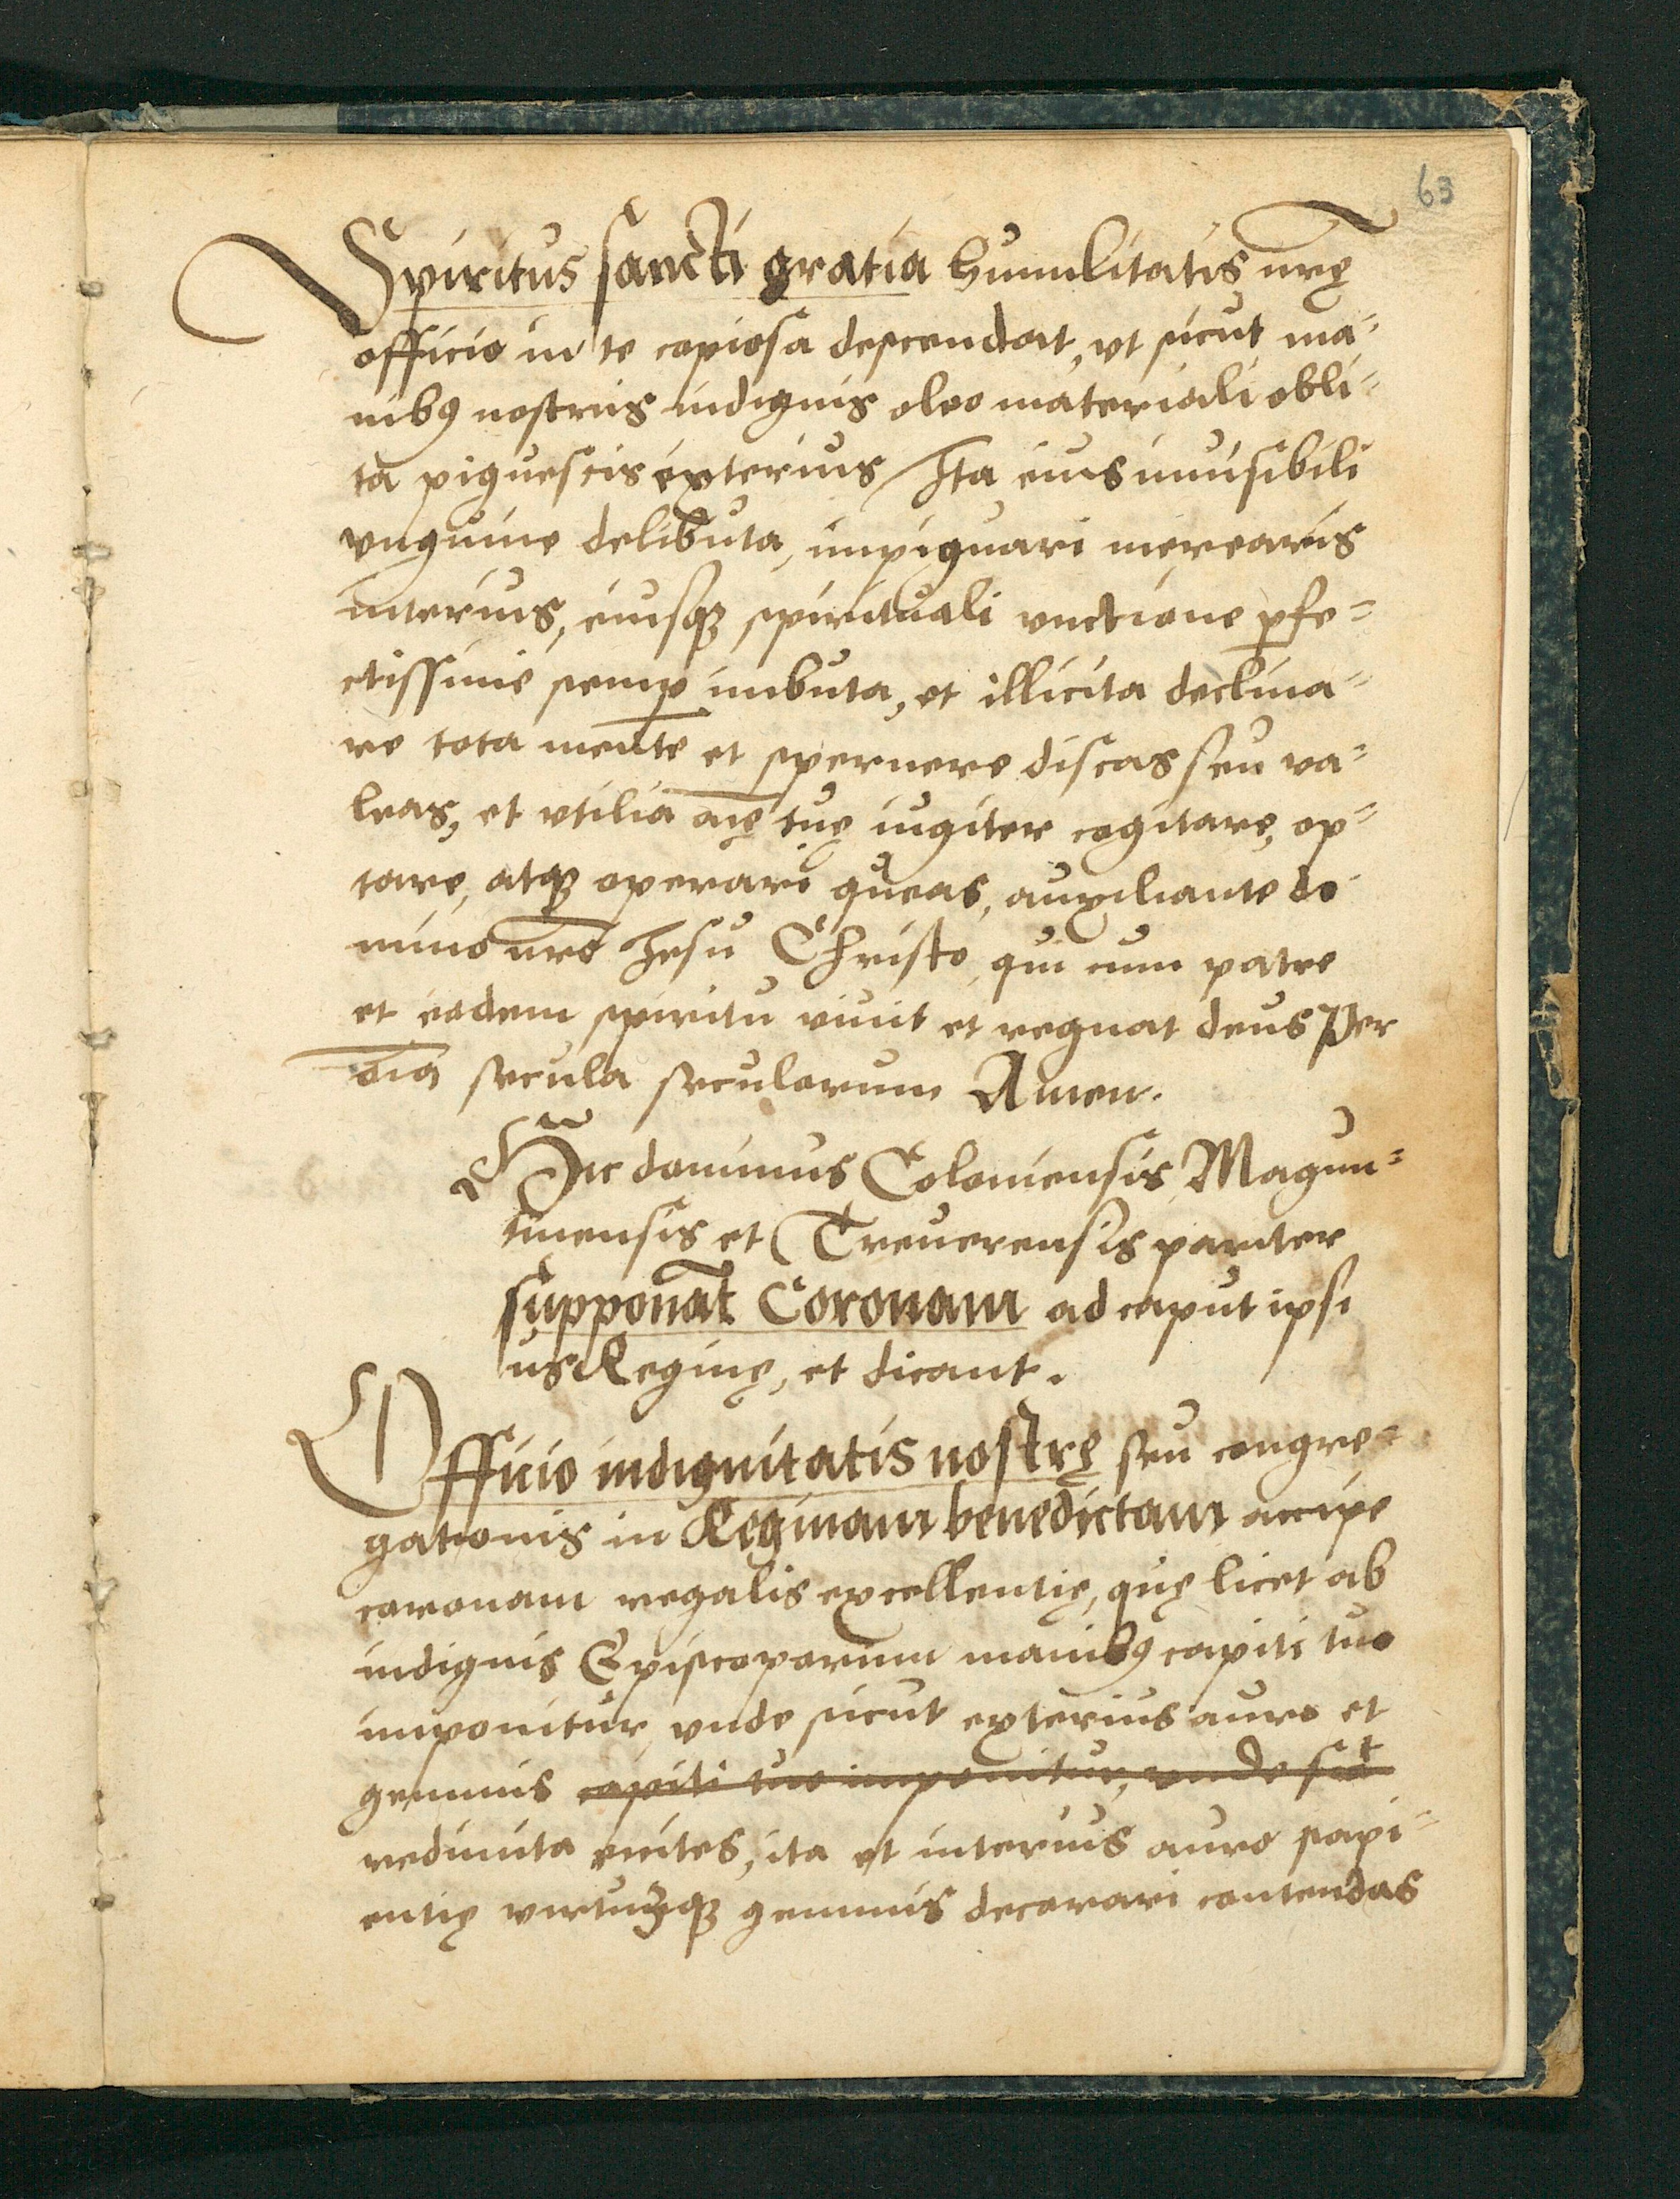 63
Spiritus sancti gratia humilitatis nrę
officio in te copiosa descendat, vt sicut ma=
nibꝰ nostris indignis oleo materiali obli=
ta pignescis exterius, Ita eius inuisibili
vnguine delibuta, impignari merearis
interius, eiusqꝫ spirituali vnctione ꝑfe=
ctissime semꝑ imbuta, et illicita declina=
re tota mente et spernere discas seu va=
leas, et vtilia aīę tuę iugiter cogitare, op=
tare, atqꝫ operari queas, auxiliante do
mino nr̄o Jesu Christo, qui cum patre
et eodem spiritu viuit et regnat deus Per
oīa secula seculorum Amen.
Hic dominus Coloniensis Magun=
tinensis et Treuerensis pariter
supponāt Coronam ad caput ipsi
us Reginę, et dicant.
Officio indignitatis nostrę seu congre=
gationis in Reginam benedictam accipe
coronam regalis excellentię, quę licet ab
indignis Episcoporum manibꝰ capiti tuo
imponitur, vnde sicut exterius auro et
gemmis capiti tuo imponitur, vnde sict
redimita enites, ita et interius auro sapi=
entię virtutūqꝫ gemmis decorari contendas